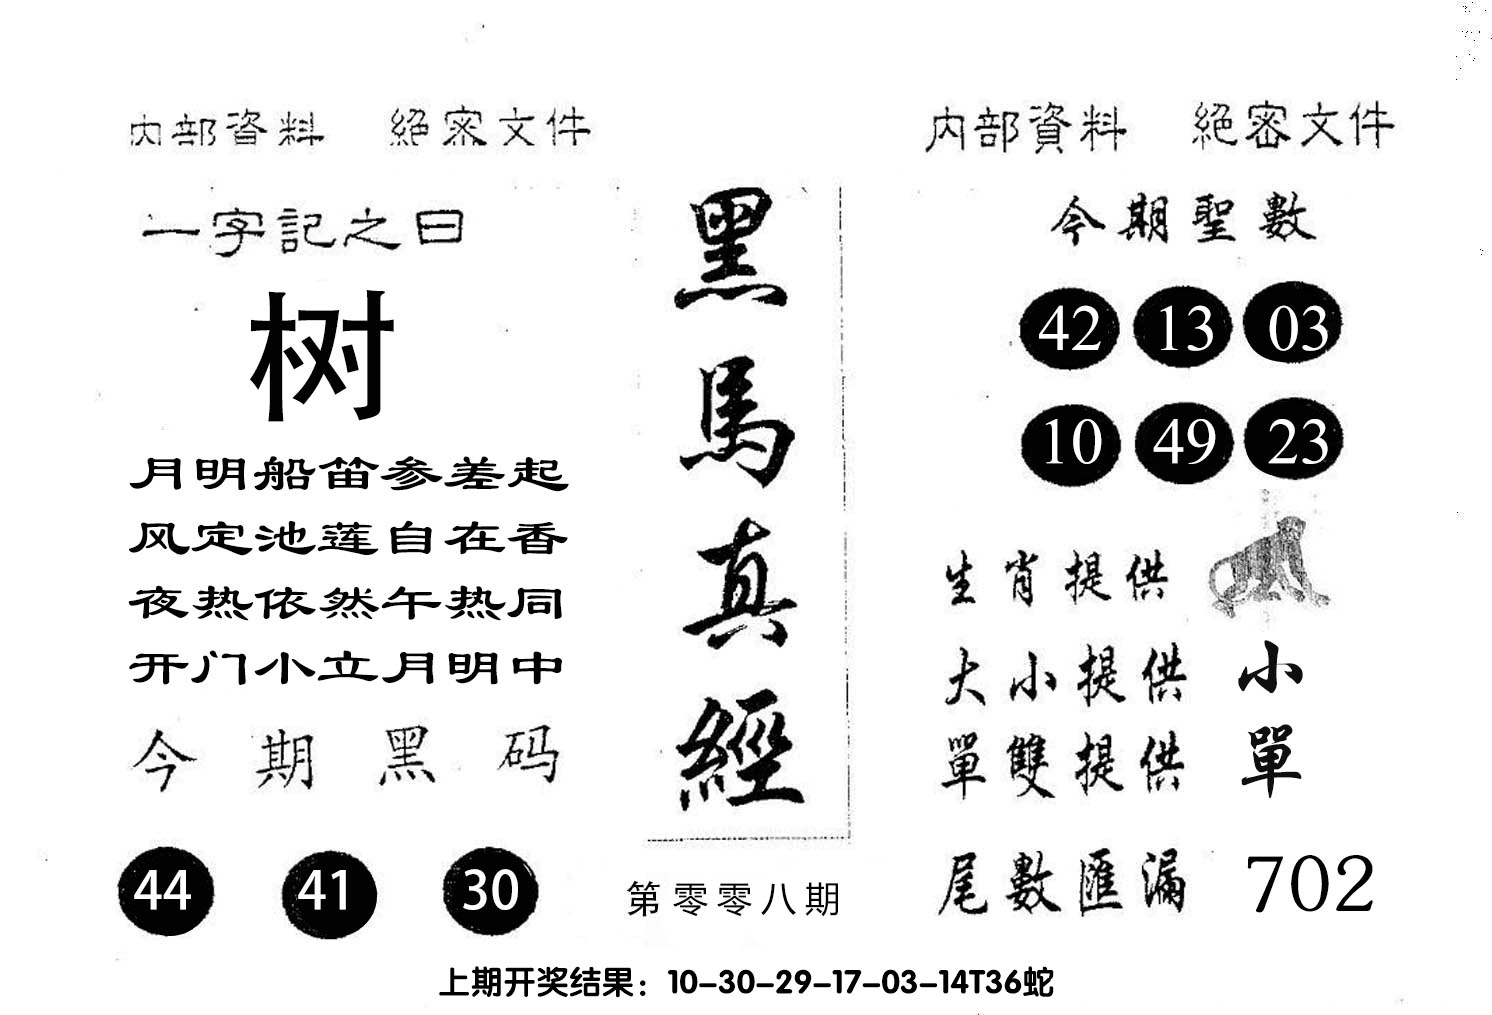 内部資料 絕密文件
一字記之曰
树
月明船笛参差起
风定池莲自在香
夜热依然午热同
开门小立月明中
今期黑码
44 41 30
黑馬真經
第零零八期
内部資料 絕密文件
今期聖數
42 13 03
10 49 23
生肖提供
大小提供 小
單雙提供 單
尾數匯漏 702
上期开奖结果：10-30-29-17-03-14T36蛇